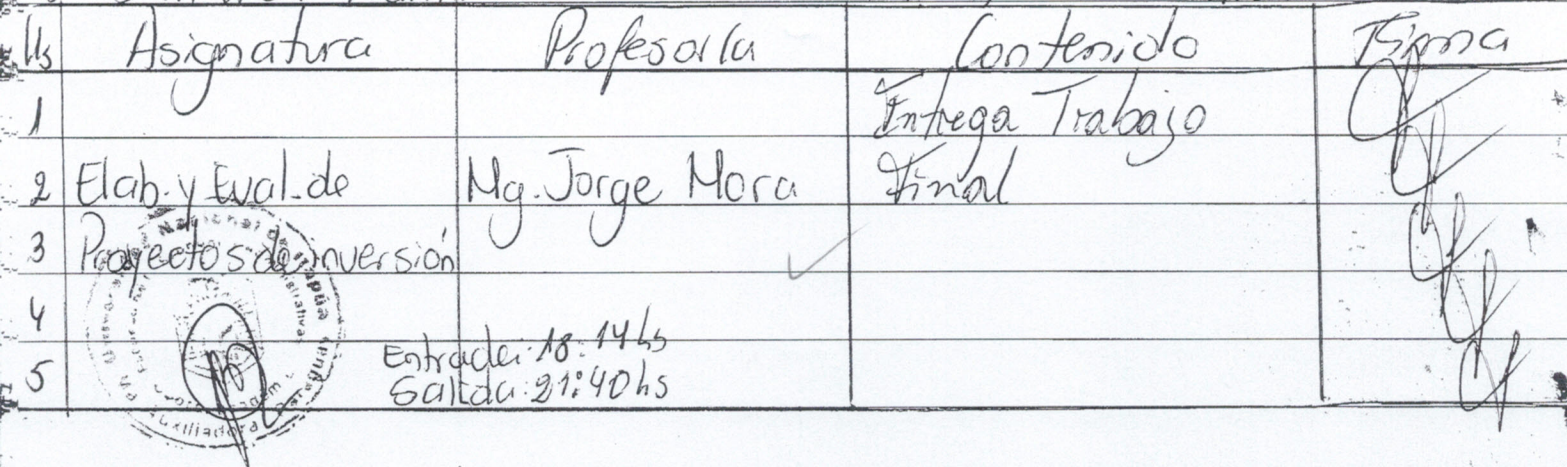 Hs Asignatura Profesor/a Contenido Firma
1 Entrega Trabajo
2 Elab. y Eval. de Mg. Jorge Mora Final
3 Proyectos de inversión
4
Entrada: 18:14 hs
5 Salida: 21:40 hs